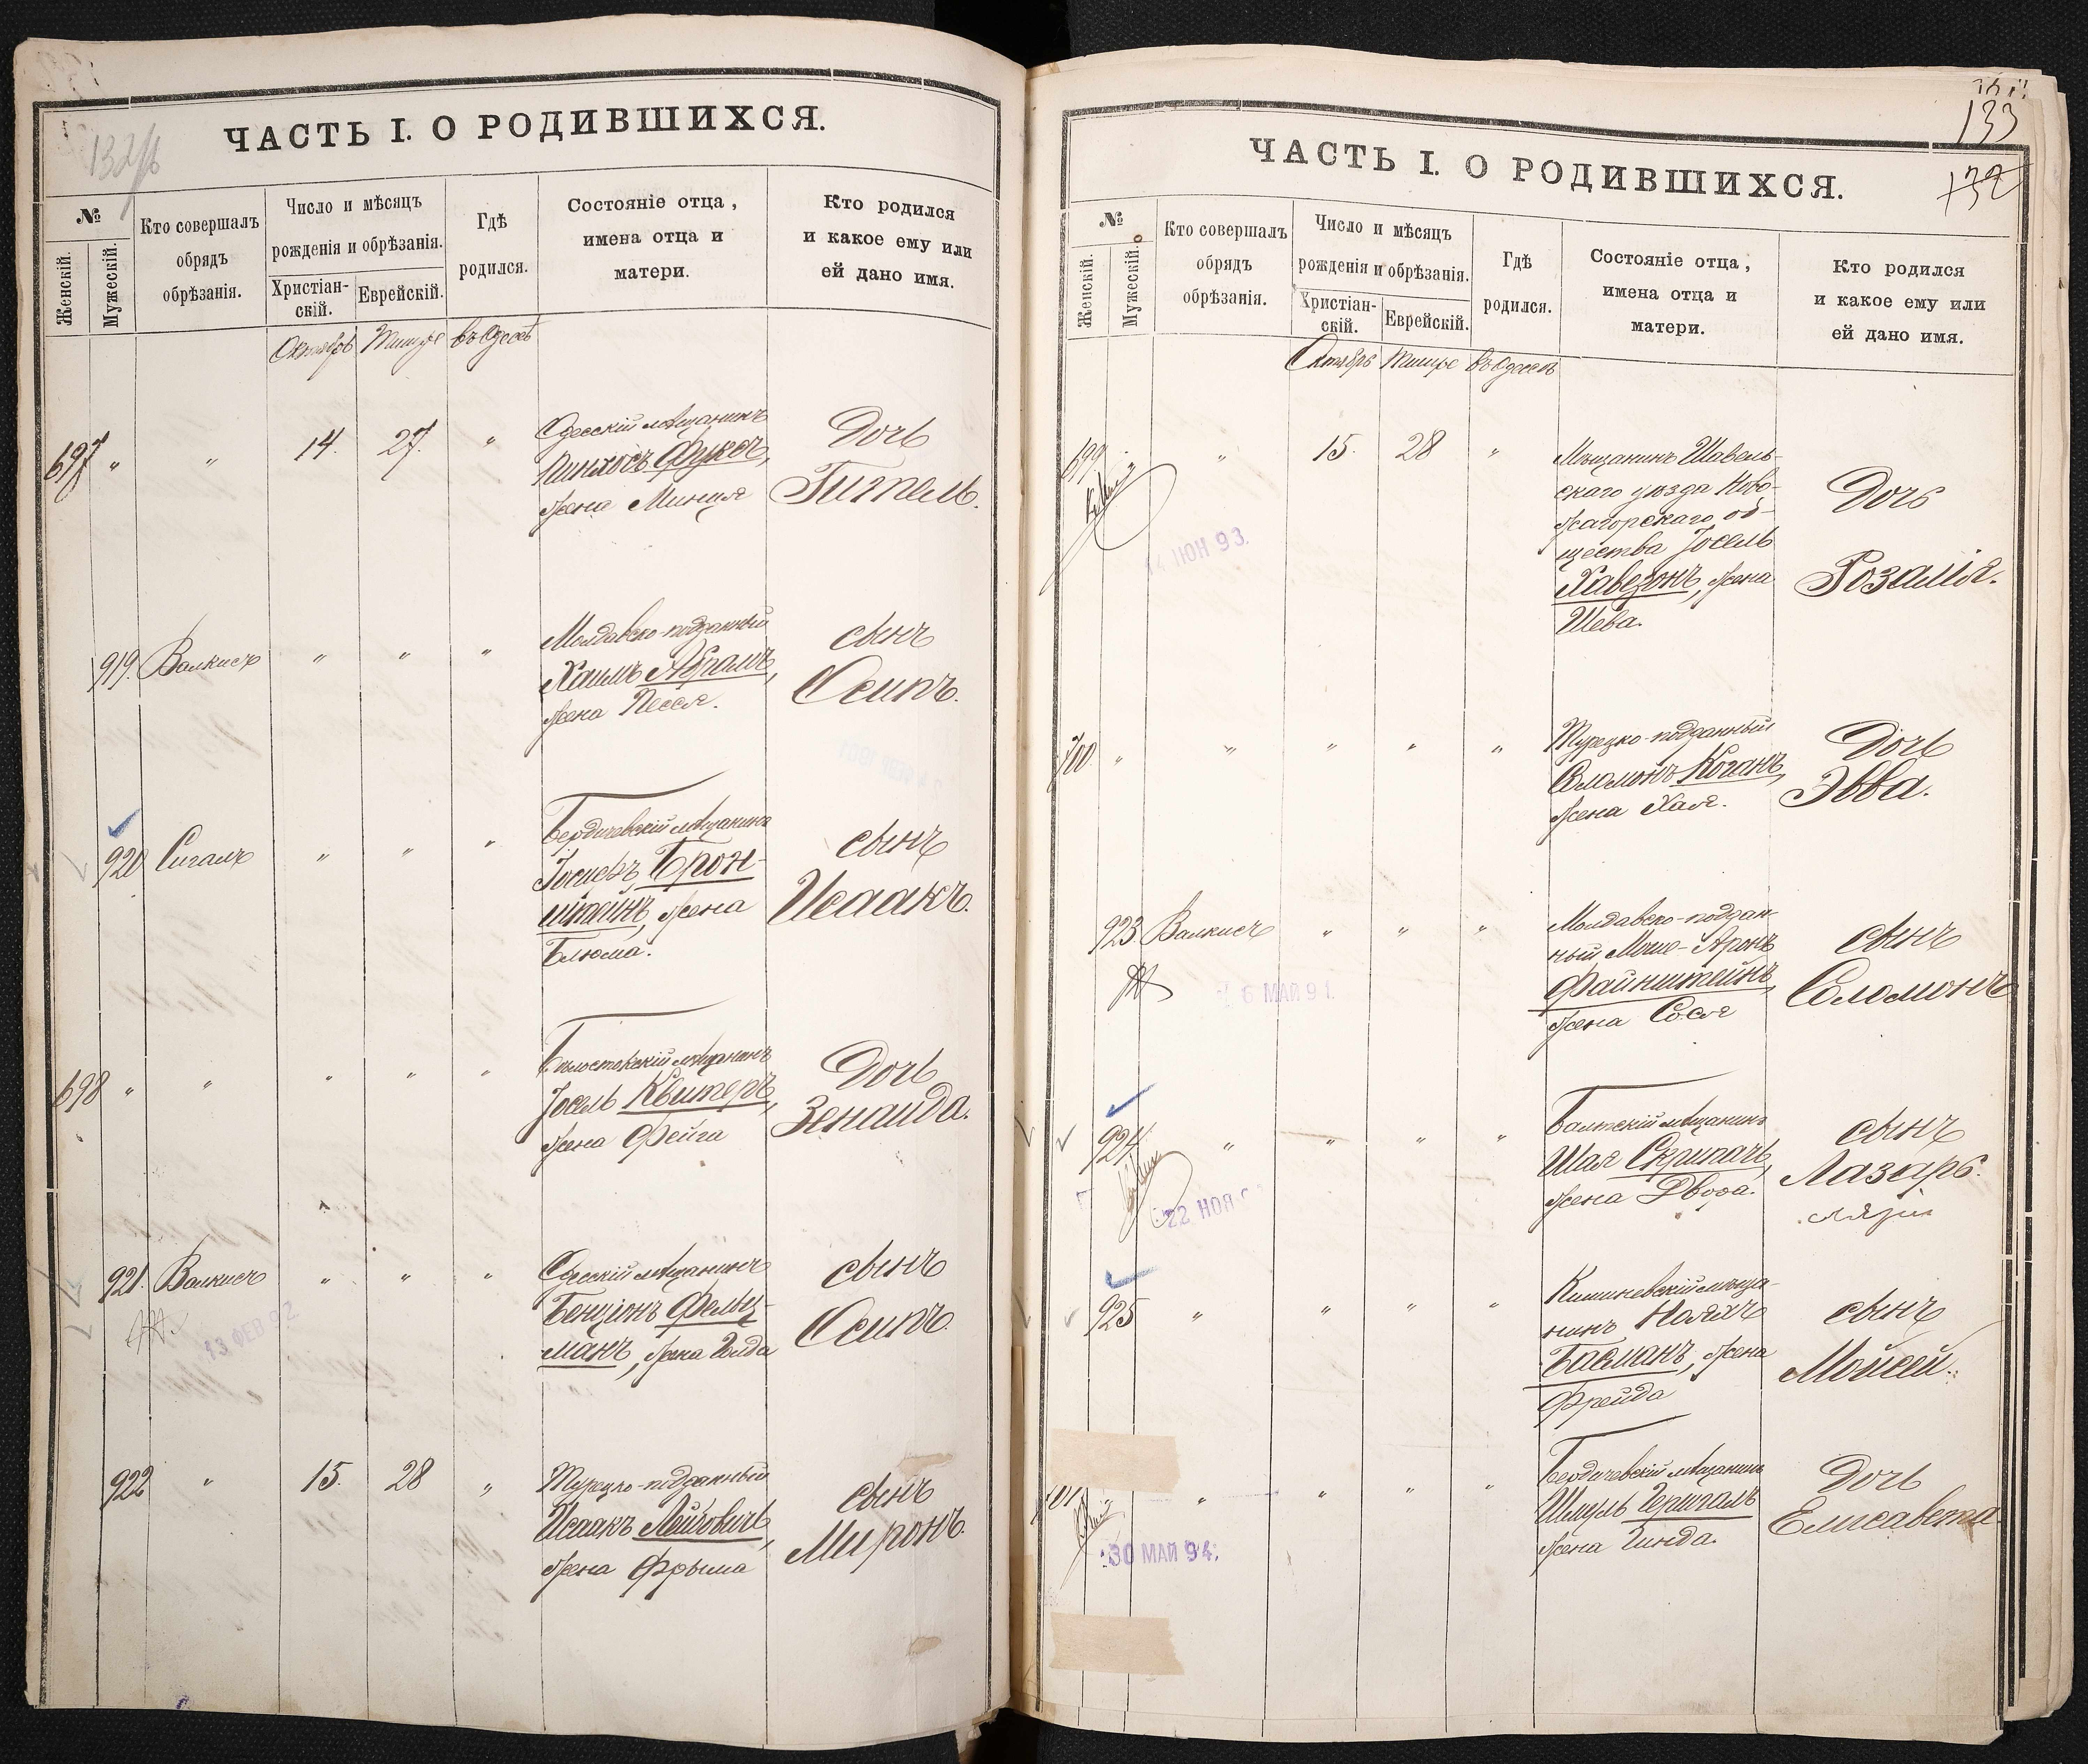 132/б
ЧАСТЬ I. О РОДИВШИХСЯ.
№
Женскій.
Мужескій.
Кто совершалъ
обрядъ
обрѣзанія.
Число и мѣсяцъ
рожденія и обрѣзанія.
Христіан-
скій.
Еврейскій.
Гдѣ
родился.
Состояніе отца,
имена отца и
матери.
Кто родился
и какое ему или
ей дано имя.
Октябрь Тишре въ Одессѣ
697 " " 14. 27. "
Одесскій мѣщанинъ
Пинхосъ Фуксъ,
жена Миньця
Дочь
Гитель.
919. Валкисъ " " "
Молдавско-подданный
Хаимъ Абрамъ,
жена Песся.
сынъ
Осипъ.
920 Сигалъ " " "
Бердичевскій мѣщанинъ
Іосифъ Брон-
штейнъ, жена
Блюма.
сынъ
Исаакъ.
698 " " " " "
Бѣлостокскій мѣщанинъ
Іосель Квитеръ,
жена Фейга
Дочь
Зенаида.
921. Валкисъ " " "
13 ФЕВ 92
Одесскій мѣщанинъ
Бенціонъ Фельц-
манъ, жена Голда
сынъ
Осипъ.
922 " 15. 28 "
Турецко-подданный
Исаакъ Лейбовичъ,
жена Фрыма
сынъ
Миронъ.
133
132
ЧАСТЬ I. О РОДИВШИХСЯ.
№
Женскій.
Мужескій.
Кто совершалъ
обрядъ
обрѣзанія.
Число и мѣсяцъ
рожденія и обрѣзанія.
Христіан-
скій.
Еврейскій.
Гдѣ
родился.
Состояніе отца,
имена отца и
матери.
Кто родился
и какое ему или
ей дано имя.
Октябрь Тишре въ Одессѣ
699 " 15. 28 "
ІЮН 93.
Мѣщанинъ Шавель-
скаго уѣзда Ново-
жагорскаго об-
щества Іосель
Хавезонъ, жена
Шева.
Дочь
Розалія.
700 " " " " "
Турецко-подданный
Соломонъ Коганъ,
жена Хая.
Дочь
Эвва.
923 Валкисъ " " "
6 МАЙ 91.
Молдавско-поддан-
ный Мошо-Аронъ
Файнштейнъ,
жена Сося
сынъ
Соломонъ
924 " " " "
22 НОЯ
Балтскій мѣщанинъ
Шая Скрипачъ,
жена Двора.
сынъ
Лазарь.
925 " " " "
Кишиневскій мѣща-
нинъ Нояхъ
Басманъ, жена
Фрейда
сынъ
Мойсей.
701 " " " "
30 МАЙ 94.
Бердичевскій мѣщанинъ
Шмуль
жена Гинда.
Дочь
Елисавета